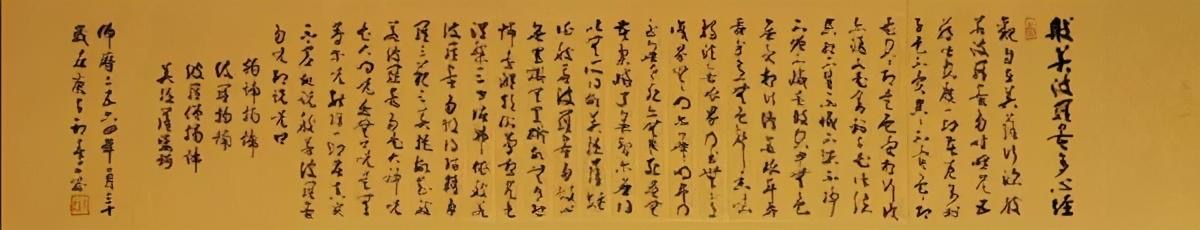 般若波羅蜜多心經
觀自在菩薩行深般
若波羅蜜多時照見五
蘊皆空度一切苦厄舍利
子色不異空空不異色色即
是空空即是色受想行識
亦復如是舍利子是諸法
空相不生不滅不垢不淨
不增不減是故空中無色
無受想行識無眼耳鼻
舌身意無色聲香味
觸法無眼界乃至無意
識界無無明亦無無明
盡乃至無老死亦無老死盡無
苦集滅道無智亦無得
以無所得故菩提薩埵
依般若波羅蜜多故心
無罣礙無罣礙故無有恐
怖遠離顛倒夢想究竟
涅槃三世諸佛依般若
波羅蜜多故得阿耨多
羅三藐三菩提故知般
若波羅蜜多是大神咒
是大明咒是無上咒是無
等等咒能除一切苦真實
不虛故說般若波羅蜜
多咒即說咒曰
揭諦揭諦
波羅揭諦
波羅僧揭諦
菩提薩婆訶
佛曆二五六四年月三十
歲在庚子初春